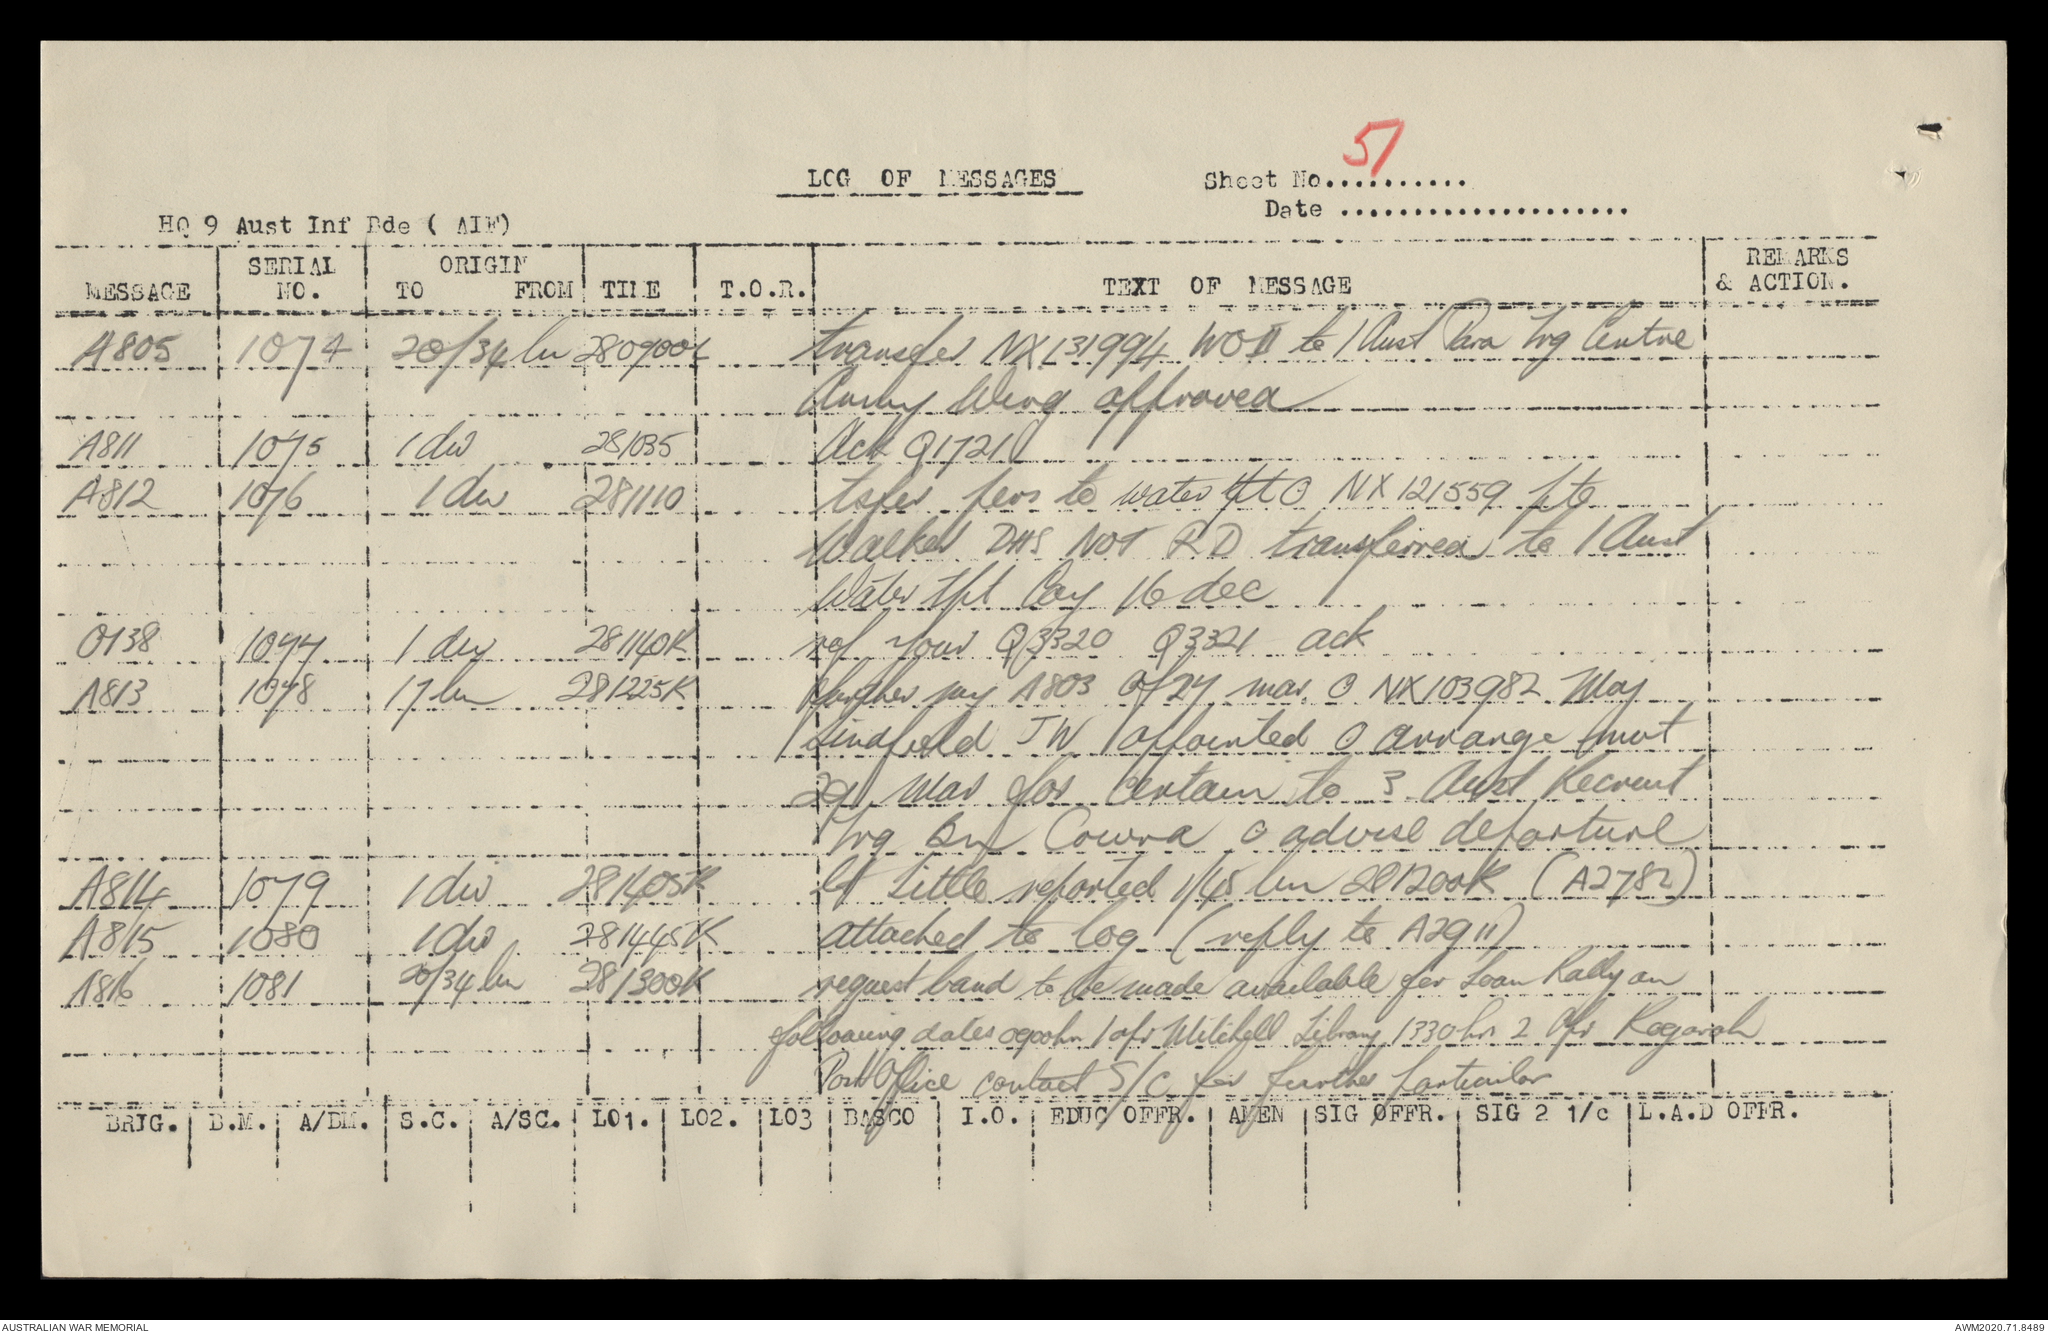 51
LOG OF MESSAGES Sheet No...........
Date .....................
HQ 9 Aust Inf Bde ( AIF)
MESSAGE SERIAL NO. ORIGIN TO FROM TIME T.O.R. TEXT OF MESSAGE REMARKS & ACTION.
A805 1074 20/34 bn 280900K transfer NX131994 WOII to 1 Aust Para Trg Centre
Army Wing approved
A811 1075 1 div 281035 Ack Q1721
A812 1076 1 div 281110 tsfer pers to water tpt O NX121559 pte
Walker DHS NOT RD transferred to 1 Aust
Water tpt Coy 16 dec
O138 1077 1 div 281140K ref your Q3320 Q3321 ack
A813 1078 17 bn 281225K further my A803 of 27 mar O NX103982 Maj
Lindfield JW appointed O arrange mvt
29 mar for certain to 3 Aust Recruit
Trg Bn Cowra O advise departure
A814 1079 1 div 281405K Lt Little reported 1/45 bn 281200K (A2782)
A815 1080 1 div 281445K attached to log (reply to A2911)
A816 1081 20/34 bn 281300K request band to be made available for Loan Rally on
following dates 0900hr 1 apr Mitchell Library 1330hrs 2 Apr Kogarah
Post Office contact S/C for further particular
BRIG. B.M. A/BM. S.C. A/SC. LO1. LO2. LO3 BASCO I.O. EDUC OFFR. AMEN SIG OFFR. SIG 2 1/c L.A.D OFFR.
AUSTRALIAN WAR MEMORIAL AWM2020.71.8489